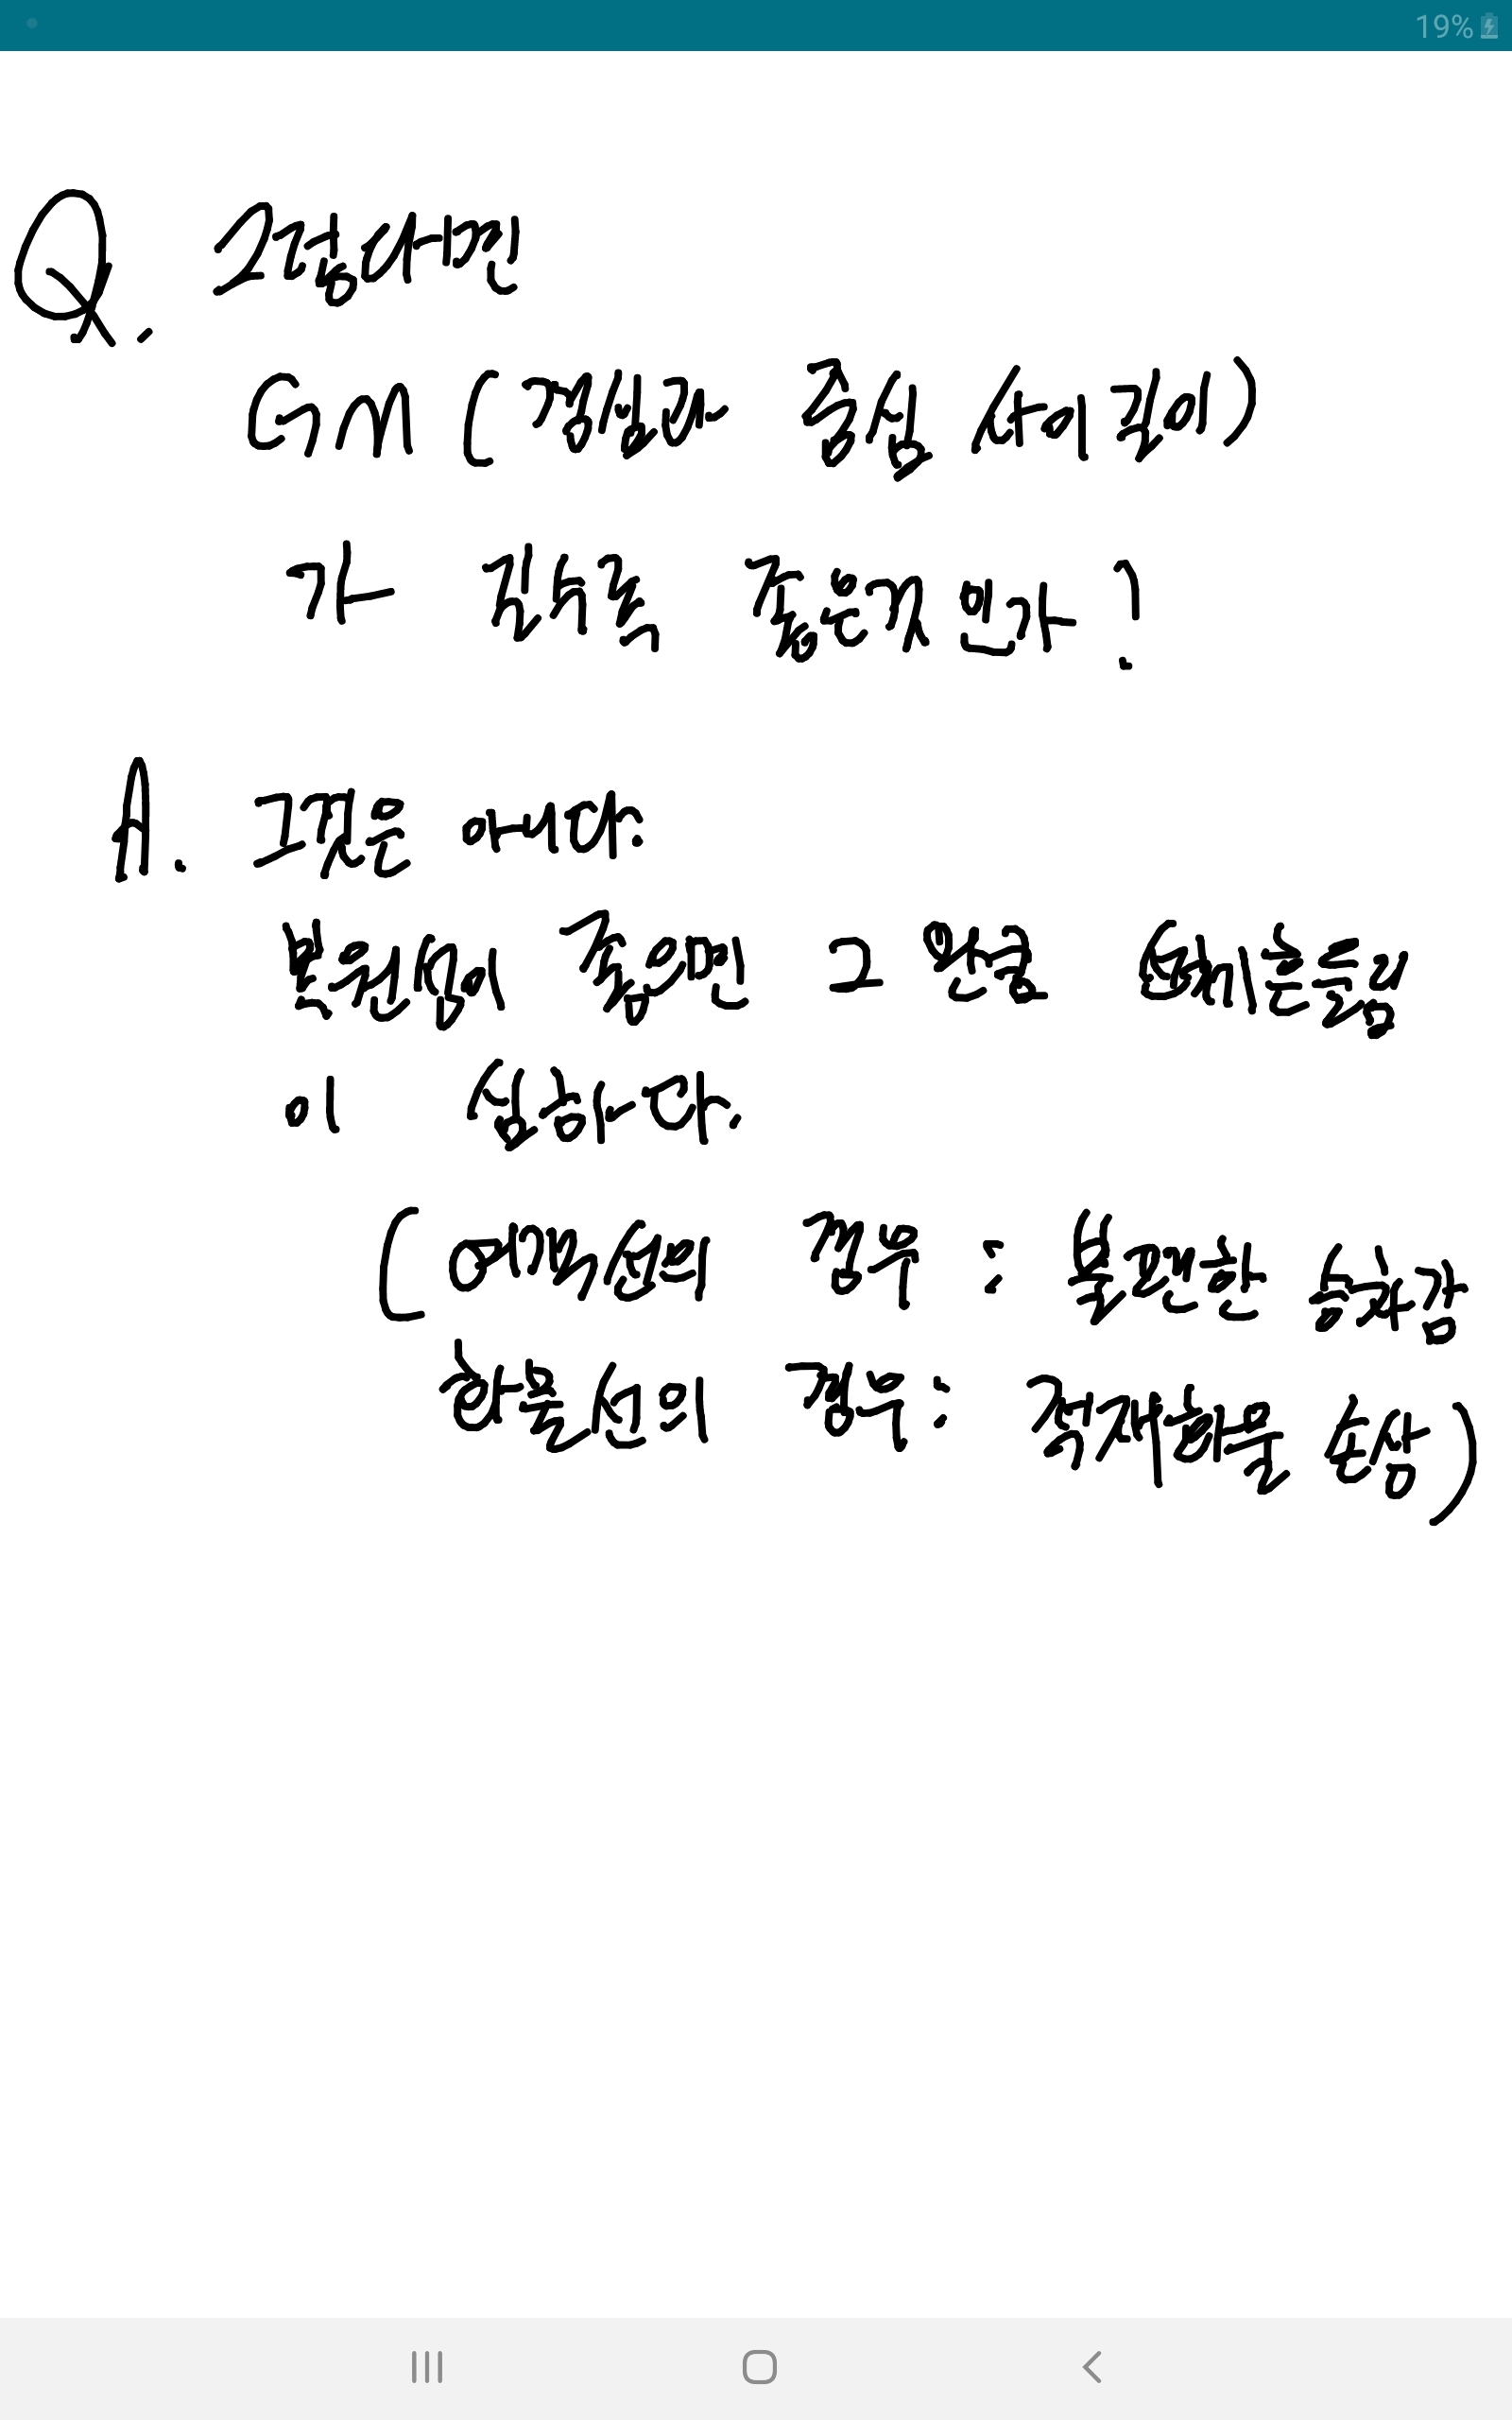 19%
Q. 그렇다면
GM (경심과 중심 사이 길이)
가 길수록 좋은것인가?
A. 그것은 아니다.
복원성이 좋으면 그 만큼 선체흔들림
이 심하다.
(여객선의 경우 : 불편한 승차감
화물선의 경우 : 적재화물 손상)